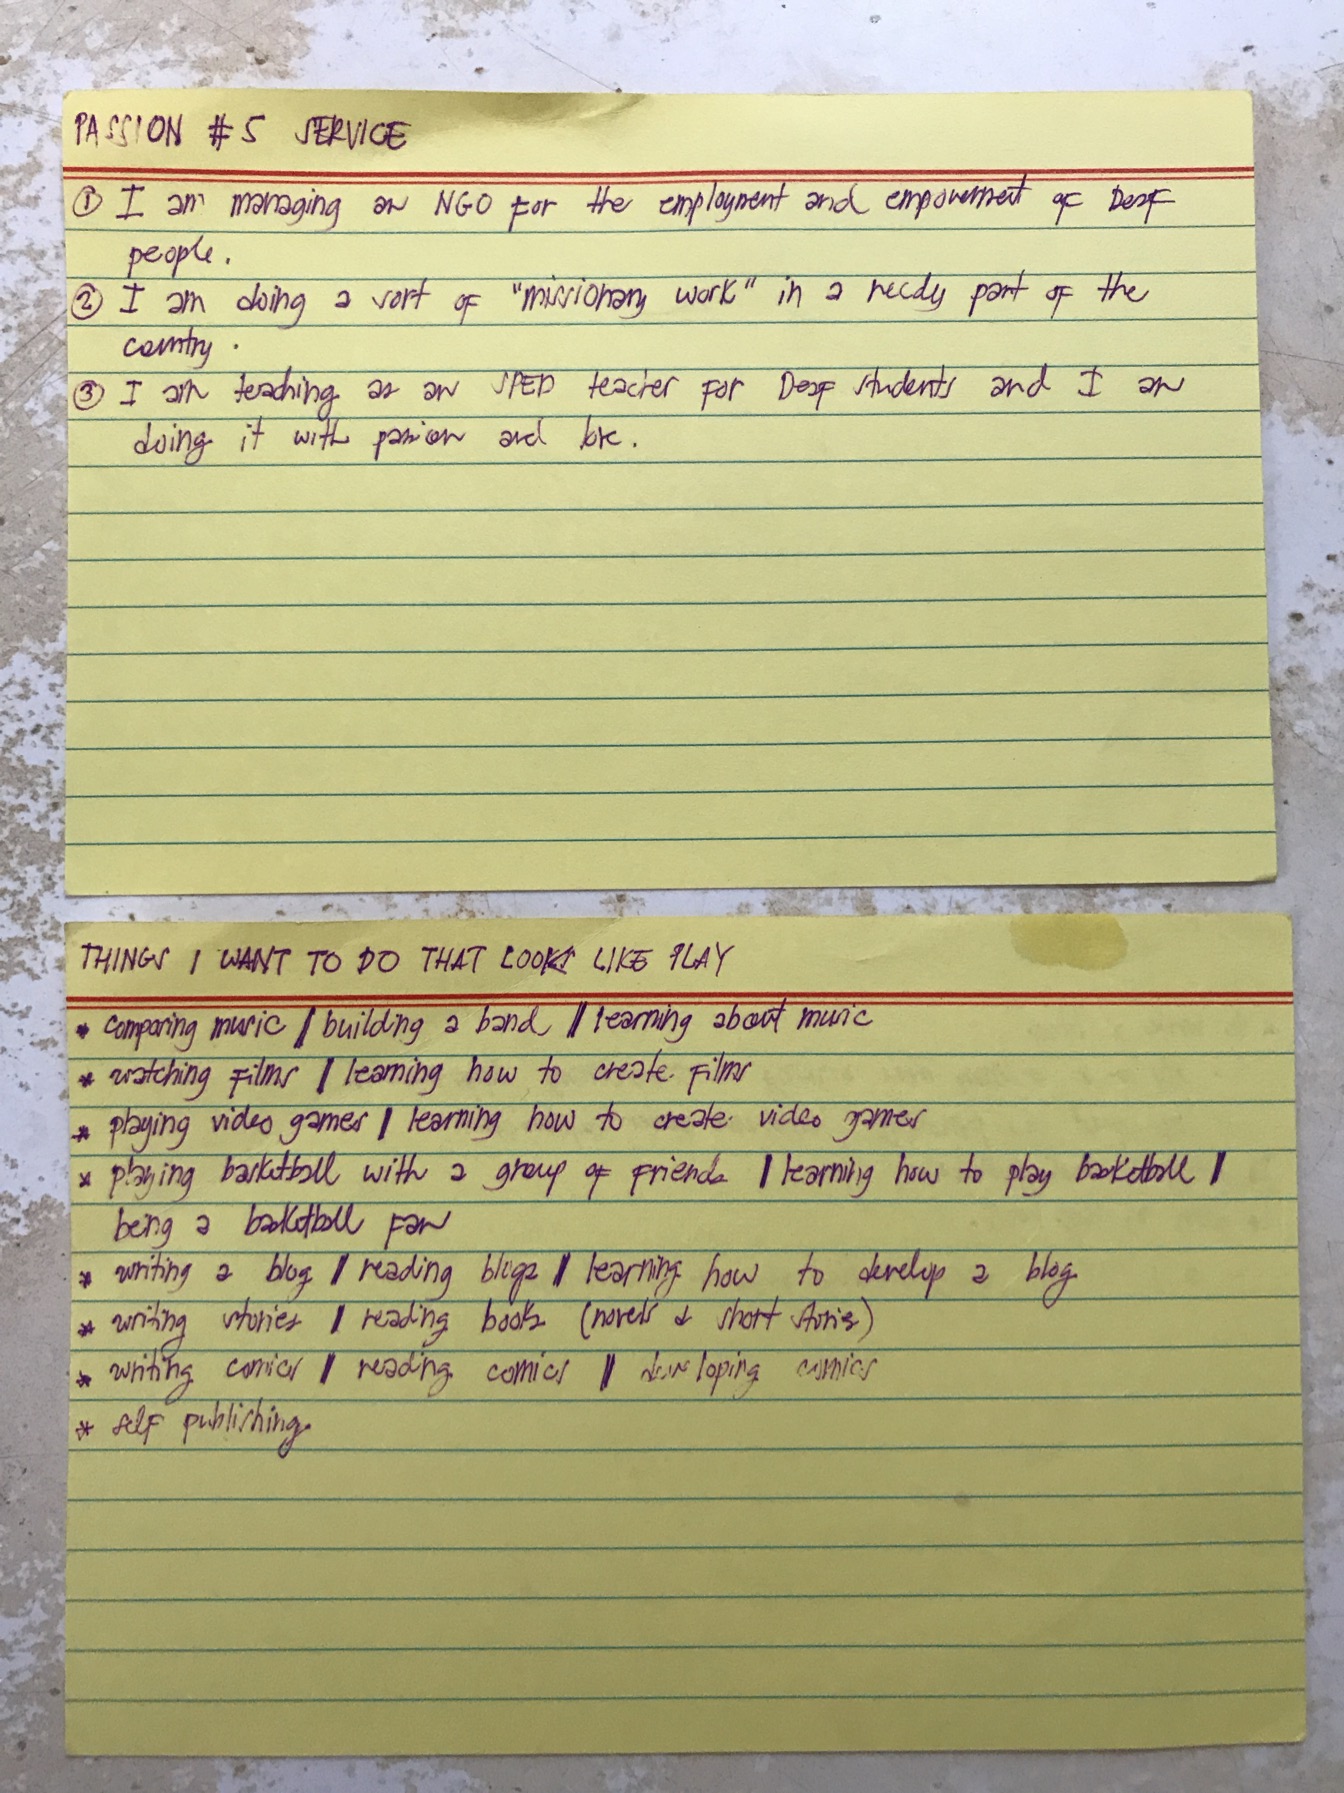 PASSION #5 SERVICE
① I am managing an NGO for the employment and empowerment of Deaf
people.
② I am doing a sort of "missionary work" in a needy part of the
country.
③ I am teaching as an SPED teacher for Deaf students and I am
doing it with passion and love.
THINGS I WANT TO DO THAT LOOKS LIKE PLAY
* comparing music / building a band // learning about music
* watching films / learning how to create films
* playing video games / learning how to create video games
* playing basketball with a group of friends / learning how to play basketball /
being a basketball fan
* writing a blog / reading blogs / learning how to develop a blog
* writing stories / reading books (novels & short stories)
* writing comics / reading comics // developing comics
* self publishing